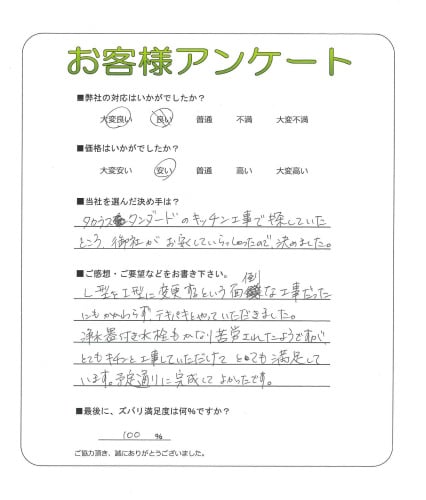 お客様アンケート
■弊社の対応はいかがでしたか？
大変良い 良い 普通 不満 大変不満
■価格はいかがでしたか？
大変安い 安い 普通 高い 大変高い
■当社を選んだ決め手は？
タカラスタンダードのキッチン工事で探していた
ところ 御社が お安くしていらっしゃったので、決めました。
■ご感想・ご要望などをお書き下さい。
L型をI型に変更するという面倒な工事だった
にもかかわらず、テキパキとやっていただきました。
浄水器付き水栓もかなり苦労されたようですが、
とてもキチンと工事していただけて とても満足して
います。予定通りに完成して よかったです。
■最後に、ズバリ満足度は何％ですか？
100 %
ご協力頂き、誠にありがとうございました。